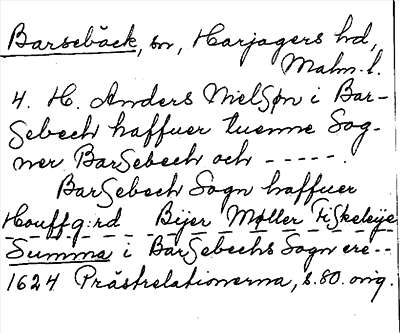 Barsebäck, sn, Harjagers hd,
Malm. l.
4. H. Anders Nielsøn i Bar-
sebech haffuer tuenne Sog-
ner Barsebech och - - - - -.
Barsebech Sogn haffuer
Houffg:rd Bijer Møller Fiskeleije
Summa i Barsebechs Sogn ere - -
1624 Prästrelationerna, s. 80. orig.